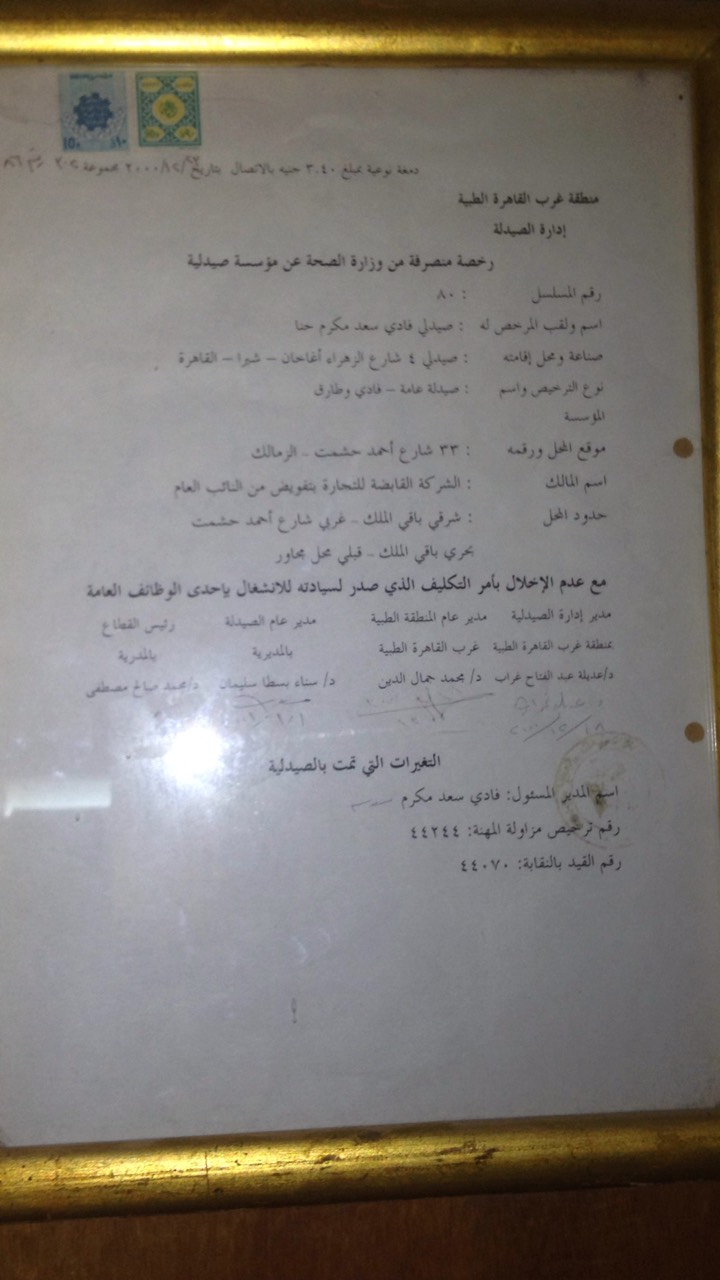 دمغة نوعية بمبلغ ٣.٤٠ جنيه بالاتصال بتاريخ ٢٠٠٠/١٢/ مجموعة ٢٠٢
منطقة غرب القاهرة الطبية
إدارة الصيدلة
رخصة منصرفة من وزارة الصحة عن مؤسسة صيدلية
رقم المسلسل : ٨٠
اسم ولقب المرخص له : صيدلي فادي سعد مكرم حنا
صناعة ومحل إقامته : صيدلي ٤ شارع الزهراء أغاخان – شبرا – القاهرة
نوع الترخيص واسم : صيدلة عامة – فادي وطارق
المؤسسة
موقع المحل ورقمه : ٣٣ شارع أحمد حشمت – الزمالك
اسم المالك : الشركة القابضة للتجارة بتفويض من النائب العام
حدود المحل : شرقي باقي الملك – غربي شارع أحمد حشمت
بحري باقي الملك – قبلي محل مجاور
مع عدم الإخلال بأمر التكليف الذي صدر لسيادته للانشغال بإحدى الوظائف العامة
مدير إدارة الصيدلية مدير عام المنطقة الطبية مدير عام الصيدلة رئيس القطاع
بمنطقة غرب القاهرة الطبية غرب القاهرة الطبية بالمديرية بالمدرية
د/عديلة عبد الفتاح غراب د/ محمد جمال الدين د/ سناء بسطا سليمان د/محمد صالح مصطفى
التغيرات التي تمت بالصيدلية
اسم المدير المسئول: فادي سعد مكرم
رقم ترخيص مزاولة المهنة: ٤٤٢٤٤
رقم القيد بالنقابة: ٤٤٠٧٠